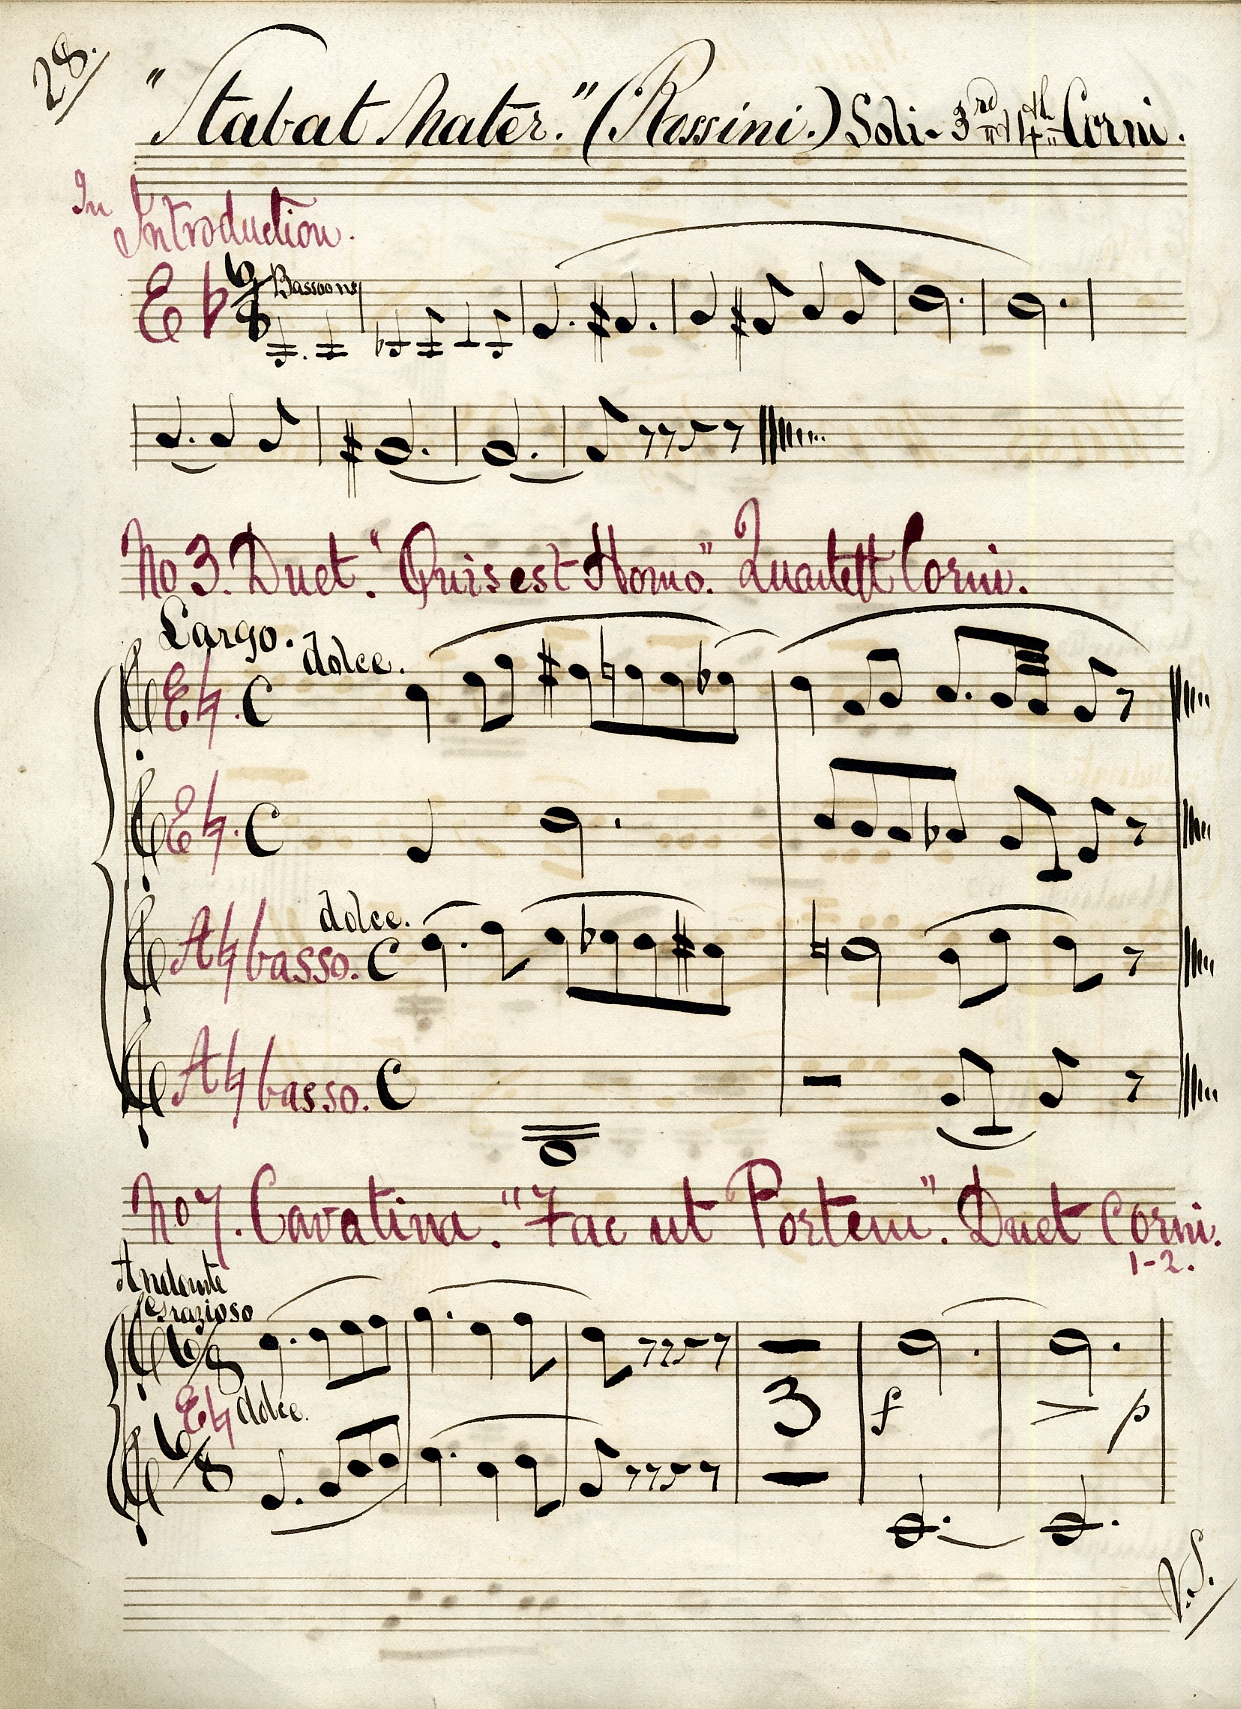 28.
"Stabat Mater." (Rossini.) Soli - 3rd 4th Corni.
In Introduction.
E♭ 6/8 Bassoons
No 3. Duet. "Quis est Homo." Quartett Corni.
Largo.
dolce.
E♮. C
E♮. C
dolce.
A♮ basso. C
A♮ basso. C
No 7. Cavatina. "Fac ut Portem". Duet Corni.
1-2.
Andante
Grazioso
6/8
E♮ dolce.
3 f > p
6/8
V.S.